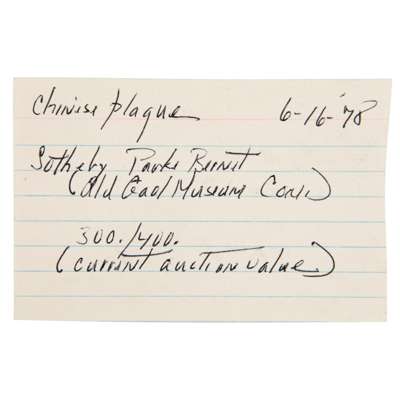 Chinese plaque 6-16-'78
Sotheby Parke Bernet
(Old Gaol Museum Cons.)
300./400.
(current auction value)